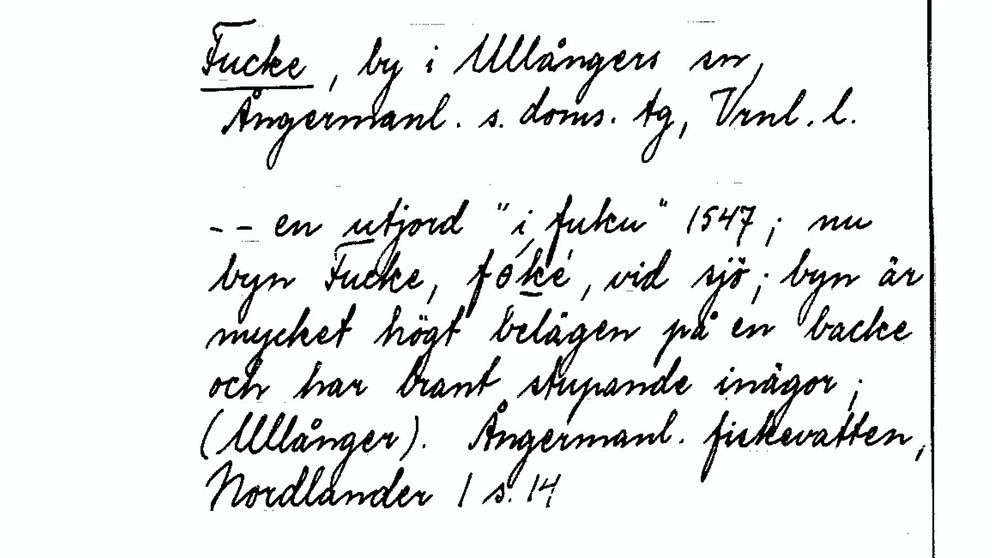 Fucke, by i Ullångers sn,
Ångermanl. s. doms. tg, Vrnl. l.
-- en utjord "i fuku" 1547; nu
byn Fucke, vid sjö; byn är
mycket högt belägen på en backe
och har brant stupande inägor;
(Ullånger). Ångermanl. fiskevatten,
Nordlander 1 s. 14